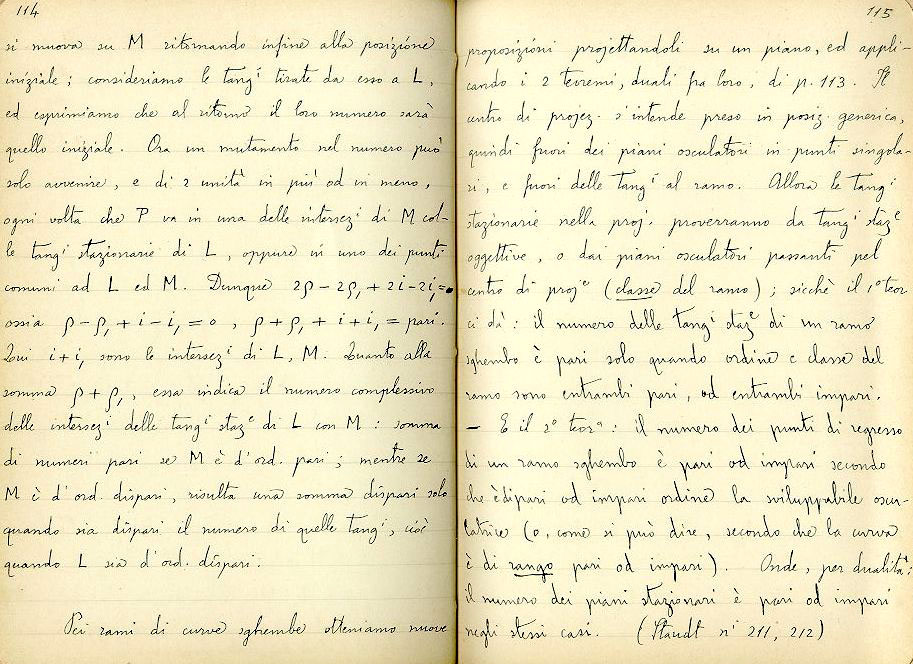 114
si muova su M ritornando infine alla posizione
iniziale; consideriamo le tangⁱ tirate da esso a L,
ed esprimiamo che al ritorno il loro numero sarà
quello iniziale. Ora un mutamento nel numero può
solo avvenire, e di 2 unità in più od in meno,
ogni volta che P va in una delle intersezⁱ di M col-
le tangⁱ stazionarie di L, oppure in uno dei punti
comuni ad L ed M. Dunque 2ρ-2ρ₁+2i-2i₁=0
ossia ρ-ρ₁+i-i₁=0, ρ+ρ₁+i+i₁= pari.
Qui i+i₁ sono le intersezⁱ di L, M. Quanto alla
somma ρ+ρ₁, essa indica il numero complessivo
delle intersezⁱ delle tangⁱ stazᵉ di L con M: somma
di numeri pari se M è d'ord. pari; mentre se
M è d'ord. dispari, risulta una somma dispari solo
quando sia dispari il numero di quelle tangⁱ, cioè
quando L sia d'ord. dispari.
Pei rami di curve sghembe otteniamo nuove
115
proposizioni projettandoli su un piano, ed appli-
cando i 2 teoremi, duali fra loro, di p. 113. Il
centro di projez. s'intende preso in posiz. generica,
quindi fuori dei piani osculatori in punti singola-
ri, e fuori delle tangⁱ al ramo. Allora le tangⁱ
stazionarie nella proj. proverranno da tangⁱ stazᵉ
oggettive, o dai piani osculatori passanti pel
centro di projᵉ (classe del ramo); sicchè il 1º teor
ci dà: il numero delle tangⁱ stazᵉ di un ramo
sghembo è pari solo quando ordine e classe del
ramo sono entrambi pari, od entrambi impari.
— E il 2º teorª: il numero dei punti di regresso
di un ramo sghembo è pari od impari secondo
che è di pari od impari ordine la sviluppabile oscu-
latrice (o, come si può dire, secondo che la curva
è di rango pari od impari). Onde, per dualità:
il numero dei piani stazionari è pari od impari
negli stessi casi. (Staudt nⁱ 211, 212)